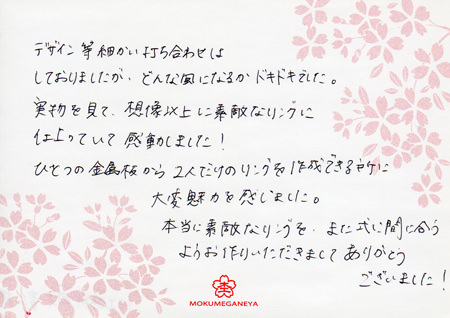 デザイン等細かい打ち合わせは
しておりましたが、どんな風になるかドキドキでした。
実物を見て、想像以上に素敵なリングに
仕上っていて感動しました！
ひとつの金属板から2人だけのリングを作成できる所に
大変魅力を感じました。
本当に素敵なリングを、また式に間に合う
ようお作りいただきまして ありがとう
ございました！
MOKUMEGANEYA